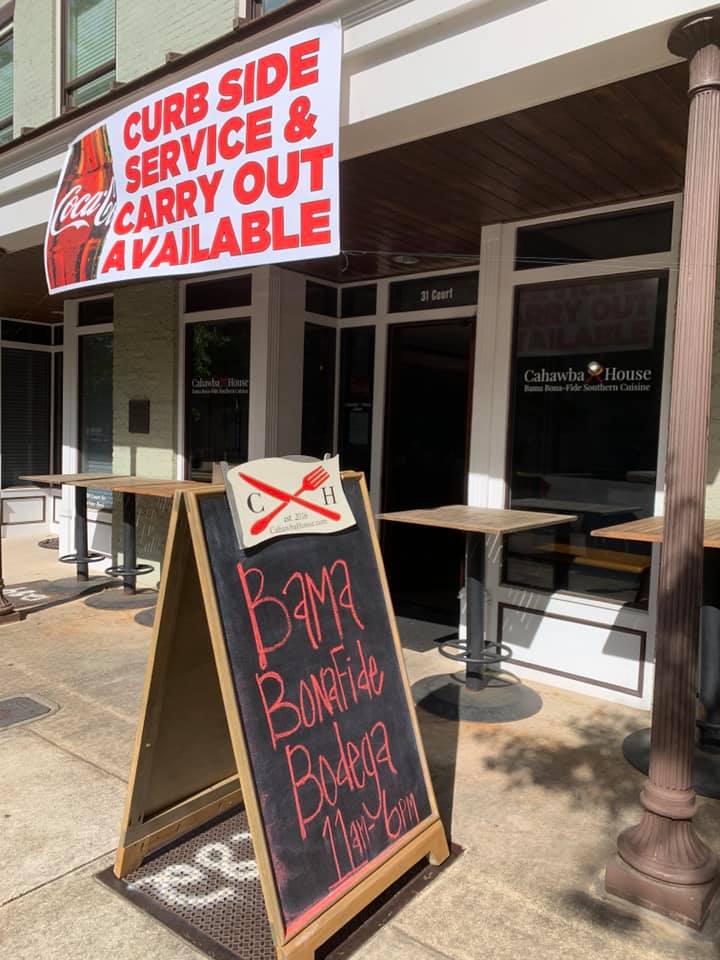 CURB SIDE
SERVICE &
CARRY OUT
AVAILABLE
Coca-Co
31 Court
Cahawba House
Bama Bona-Fide Southern Cuisine
Cahawba House
Bama Bona-Fide Southern Cuisine
CARRY OUT
AVAILABLE
C H
est. 2016
CahawbaHouse.com
BAMA
BONAFide
Bodega
11AM-6PM